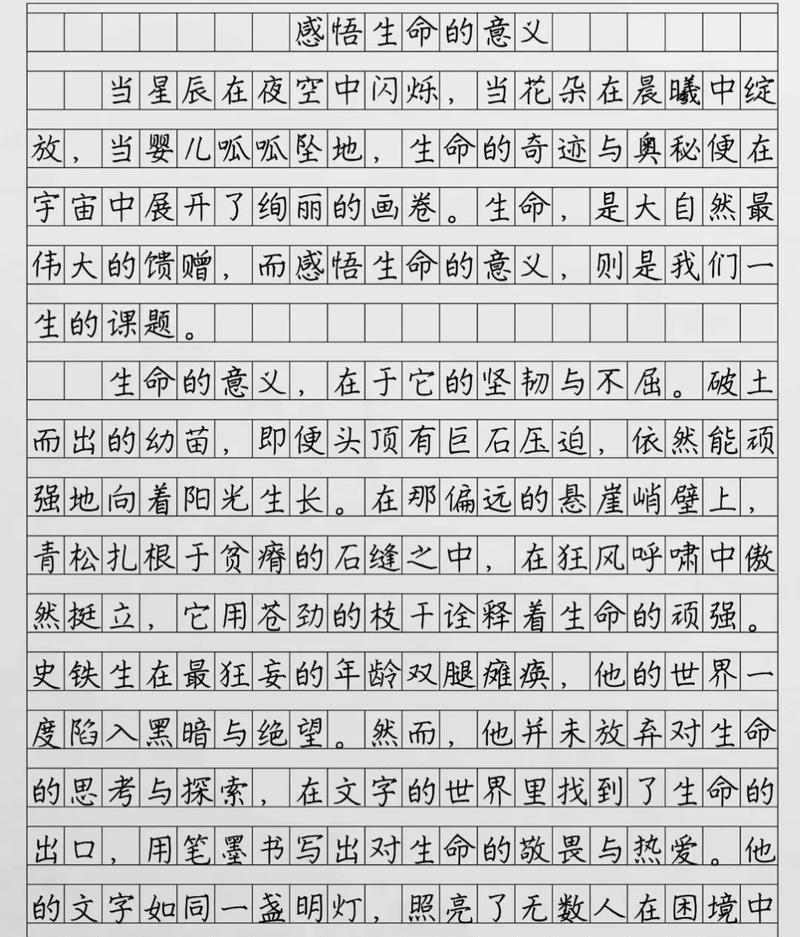 感悟生命的意义
当星辰在夜空中闪烁，当花朵在晨曦中绽
放，当婴儿呱呱坠地，生命的奇迹与奥秘便在
宇宙中展开了绚丽的画卷。生命，是大自然最
伟大的馈赠，而感悟生命的意义，则是我们一
生的课题。
生命的意义，在于它的坚韧与不屈。破土
而出的幼苗，即便头顶有巨石压迫，依然能顽
强地向着阳光生长。在那偏远的悬崖峭壁上，
青松扎根于贫瘠的石缝之中，在狂风呼啸中傲
然挺立，它用苍劲的枝干诠释着生命的顽强。
史铁生在最狂妄的年龄双腿瘫痪，他的世界一
度陷入黑暗与绝望。然而，他并未放弃对生命
的思考与探索，在文字的世界里找到了生命的
出口，用笔墨书写出对生命的敬畏与热爱。他
的文字如同一盏明灯，照亮了无数人在困境中